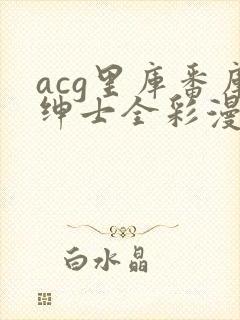 acg里库番库
绅士全彩漫
白水晶